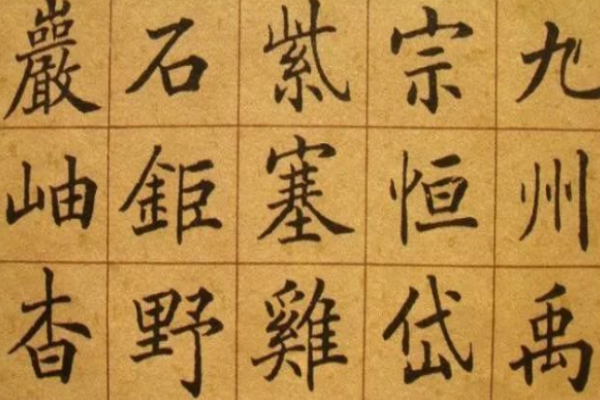 九州禹
宗恒岱
紫塞雞
石鉅野
巖岫杳